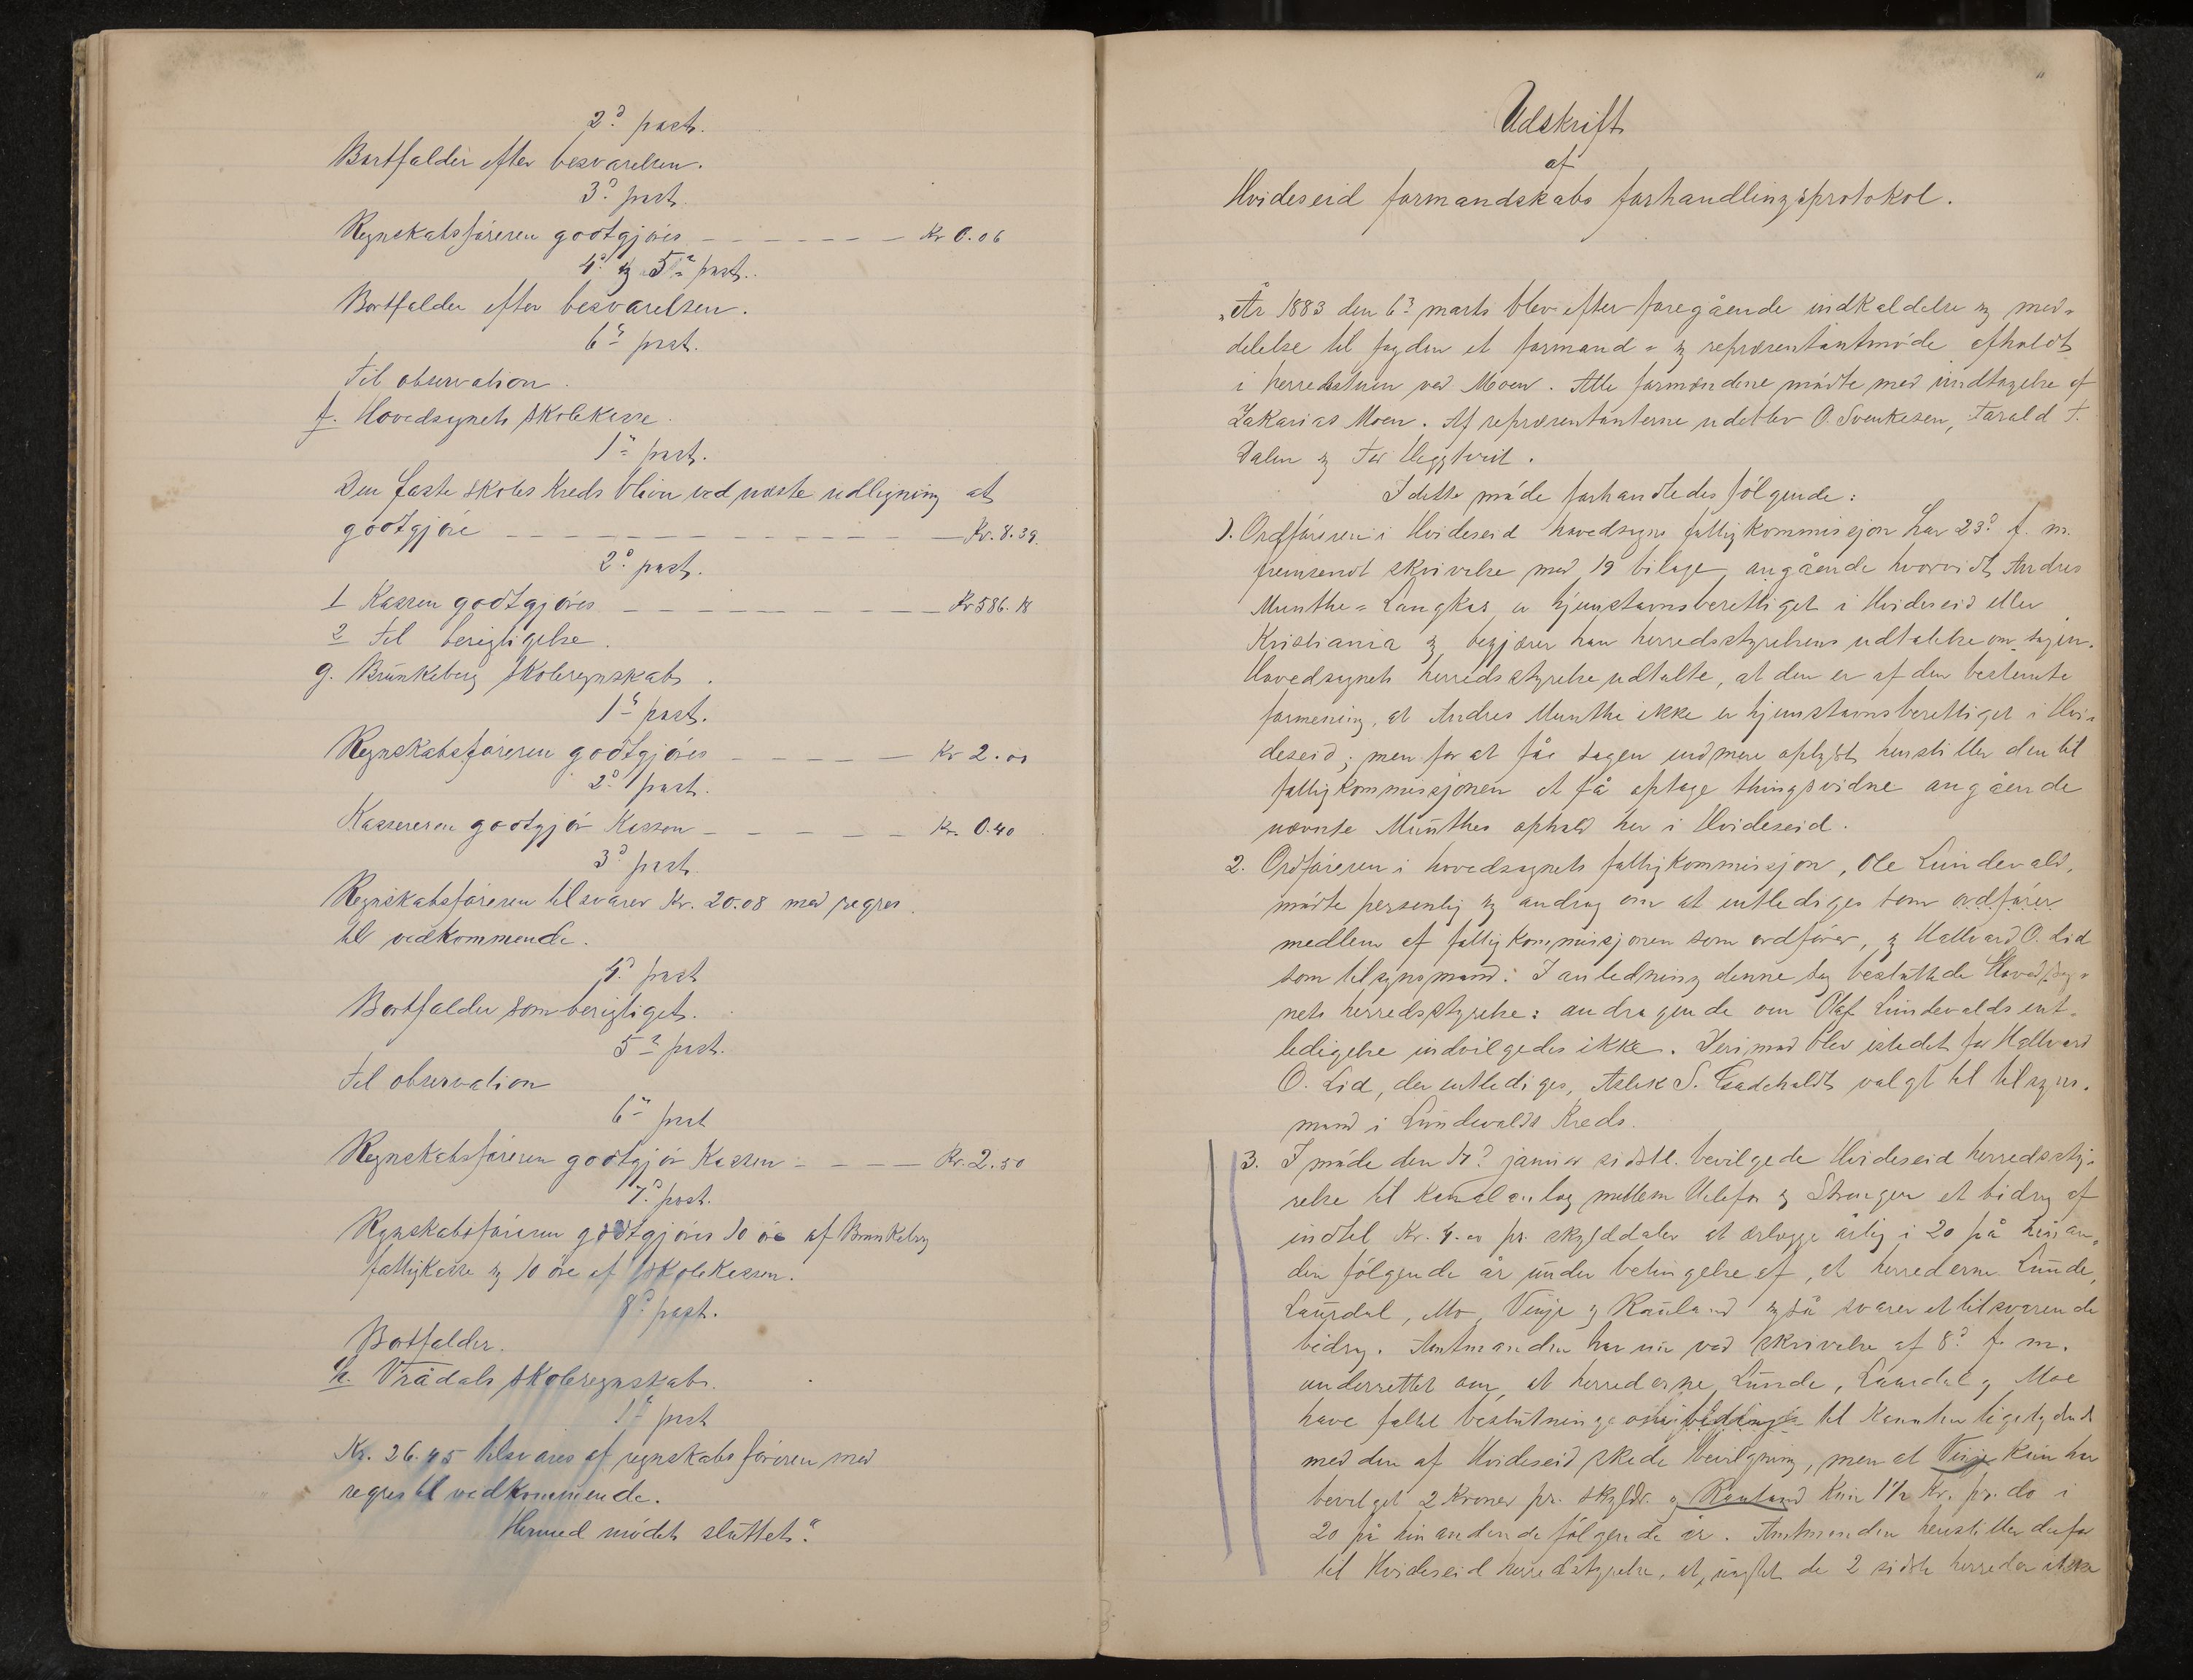 2den post.
Bortfalder efter besvarelsen.
3die post.
Regnskabsføreren godtgjøres – – – – – – Kr 0.06
4de og 5te post.
Bortfalder efter besvarelsen.
6te post.
Til observation.
f. Hovedsognets skolekasse.
1ste post.
Den faste skoles kreds bliver ved næste udligning at
godtgjøre – – – – – – – – – – – Kr. 8.39.
2den post.
1 Kassen godtgjøres – – – – – – – – Kr 586.18
2 Til berigtigelse.
g. Brunkeberg skoleregnskab.
1ste post.
Regnskabsføreren godtgjøres – – – – – Kr 2.00
2den post.
Kassereren godtgjør Kassen – – – – – Kr. 0.40
3die post.
Regnskabsføreren tilsvarer Kr. 20.08 med regres
til vedkommende.
4de post
Bortfalder som berigtiget.
5te post.
Til observation
6te post
Regnskabsføreren godtgjør Kassen – – – – Kr. 2.50
7de post.
Regnskabsføreren godtgjøres 10 øre af Brunkeberg
fattigkasse og 10 øre af skolekassen.
8de post.
Bortfalder.
h. Vrådals skoleregnskab.
1ste post
Kr. 26.45 tilsvares af regnskabsføreren med
regres til vedkommende.
Hermed mødet sluttet."
Udskrift
af
Hvideseid formandskabs forhandlingsprotokol.
"År 1883 den 6te marts blev efter foregående indkaldelse og med=
delelse til fogden et formand= og repræsentantmøde afholdt
i herredstuen ved Moen. Alle formændene mødte med undtagelse af
Zakarias Moen. Af repræsentanterne udeblev O. Svenkesen, Tarald T.
Dalen og Tor Heggtveit.
I dette møde forhandledes følgende:
1. Ordføreren i Hvideseid hovedsogns fattigkommisjon har 23de f. m.
fremsendt skrivelse med 19 bilage, angående hvorvidt Andres
Munthe=Langkås er hjemstavnsberettiget i Hvideseid eller
Kristiania og begjærer han herredsstyrelsens udtalelse om sagen.
Hovedsognets herredsstyrelse udtalte, at den er af den bestemte
formening, at Andres Munthe ikke er hjemstavnsberettiget i Hvi=
deseid; men for at få sagen endmere oplyst henstiller den til
fattigkommissjonen at få optage thingsvidne angående
nævnte Munthes ophold her i Hvideseid.
2. Ordføreren i hovedsognets fattigkommissjon, Ole Lundevald,
mødte personlig og androg om at entlediges som ordfører
medlem af fattigkommissjonen som ordfører, og Hallvard O. Lid
som tilsynsmand: I anledning denne sag besluttede Hovedsog=
nets herredsstyrelse: andragende om Olaf Lundevalds ent=
ledigelse indvilgedes ikke. Derimod blev istedet for Hallvard
O. Lid, der entlediges, Aslak S. valgt til tilsyns=
mand i Lundevalds kreds.
3. I møde den januar sidstl. bevilgede Hvideseid herredssty=
relse til kanalanlæg mellem Ulefos og Strengen et bidrag af
indtil Kr. 4.00 pr. skylddaler at erlægge årlig i 20 på hinan=
den følgende år under betingelse af, at herrederne Lunde,
Laurdal, Mo, Vinje og Rauland også svarer et tilsvarende
bidrag. Amtmanden har nu ved skrivelse af 8de f. m.
underrettet om, at herrederne Lunde, Laurdal og Moe
have fattet beslutninge om bidrag til Kanalen ligelydende
med den af Hvideseid skede bevilgning, men at Vinje kun har
bevilget 2 Kroner pr. skyldd. og Rauland kun 1½ Kr. pr. do i
20 på hinandende følgende år. Amtmanden henstiller derfor
til Hvideseid herredstyrelse, at, uagtet de 2 sidste herreder ikke